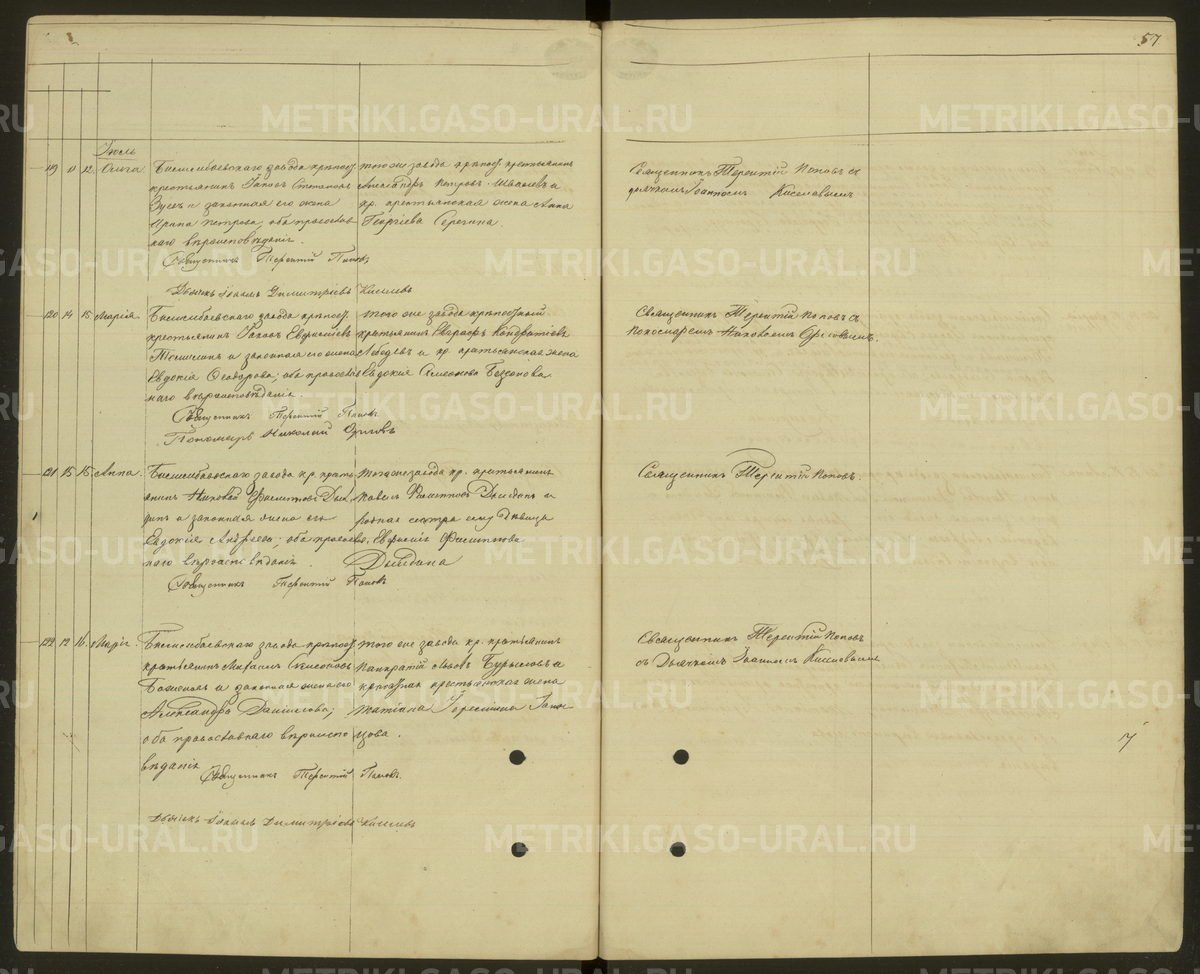 57
Июль
119 11 12 Ольга
Билимбаевскаго завода крѣпост.
крестьянинъ Іаковъ Стефановъ
и законная его жена
Ирина Петрова, оба православ
наго вѣроисповѣданія.
Священникъ Терентій Поповъ
Дьячекъ Іоаннъ Димитріевъ Киселевъ
того же завода крѣпост. крестьянинъ
Александръ Петровъ и
кр. крестьянская жена Анна
Георгіева Серегина.
Священникъ Терентій Поповъ съ
дьячкомъ Іоанномъ Киселевымъ
120 14 15 Марія
Билимбаевскаго завода крѣпост.
крестьянинъ Евфимiевъ
и законная его жена
Евдокія Ѳеодорова; оба православ
наго вѣроисповѣданія.
Священникъ Терентій Поповъ
Пономарь Николай
того же завода крѣпостный
крестьянинъ Евграфъ Кондратіевъ
Лебедевъ и кр. крестьянская жена
Евдокія Симеонова
Священникъ Терентій Поповъ съ
Пономаремъ Николаемъ
121 15 15 Анна.
Билимбаевскаго завода кр. кресть
янинъ Николай Филипповъ Дыл
динъ и законная жена его
Евдокія Андреева; оба православ
наго вѣроисповѣданія.
Священникъ Терентій Поповъ
того же завода кр. крестьянинъ
Павелъ Филипповъ Дылдинъ и
родная сестра ему дѣвица
Евфимія Филиппова
Дылдина
Священникъ Терентій Поповъ.
122 12 16 Марія.
Билимбаевскаго завода крѣпост.
крестьянинъ Михаилъ Симеоновъ
и законная жена его
Александра Данилова;
оба православнаго вѣроиспо
вѣданія
Священникъ Терентій Поповъ.
Дьячекъ Іоаннъ Димитріевъ Киселевъ
того же завода кр. крестьянинъ
Панкратій Львовъ Бурмасовъ и
крѣпостная крестьянская жена
Татіана
Священникъ Терентій Поповъ
съ Дьячкомъ Іоанномъ Киселевымъ
METRIKI.GASO-URAL.RU